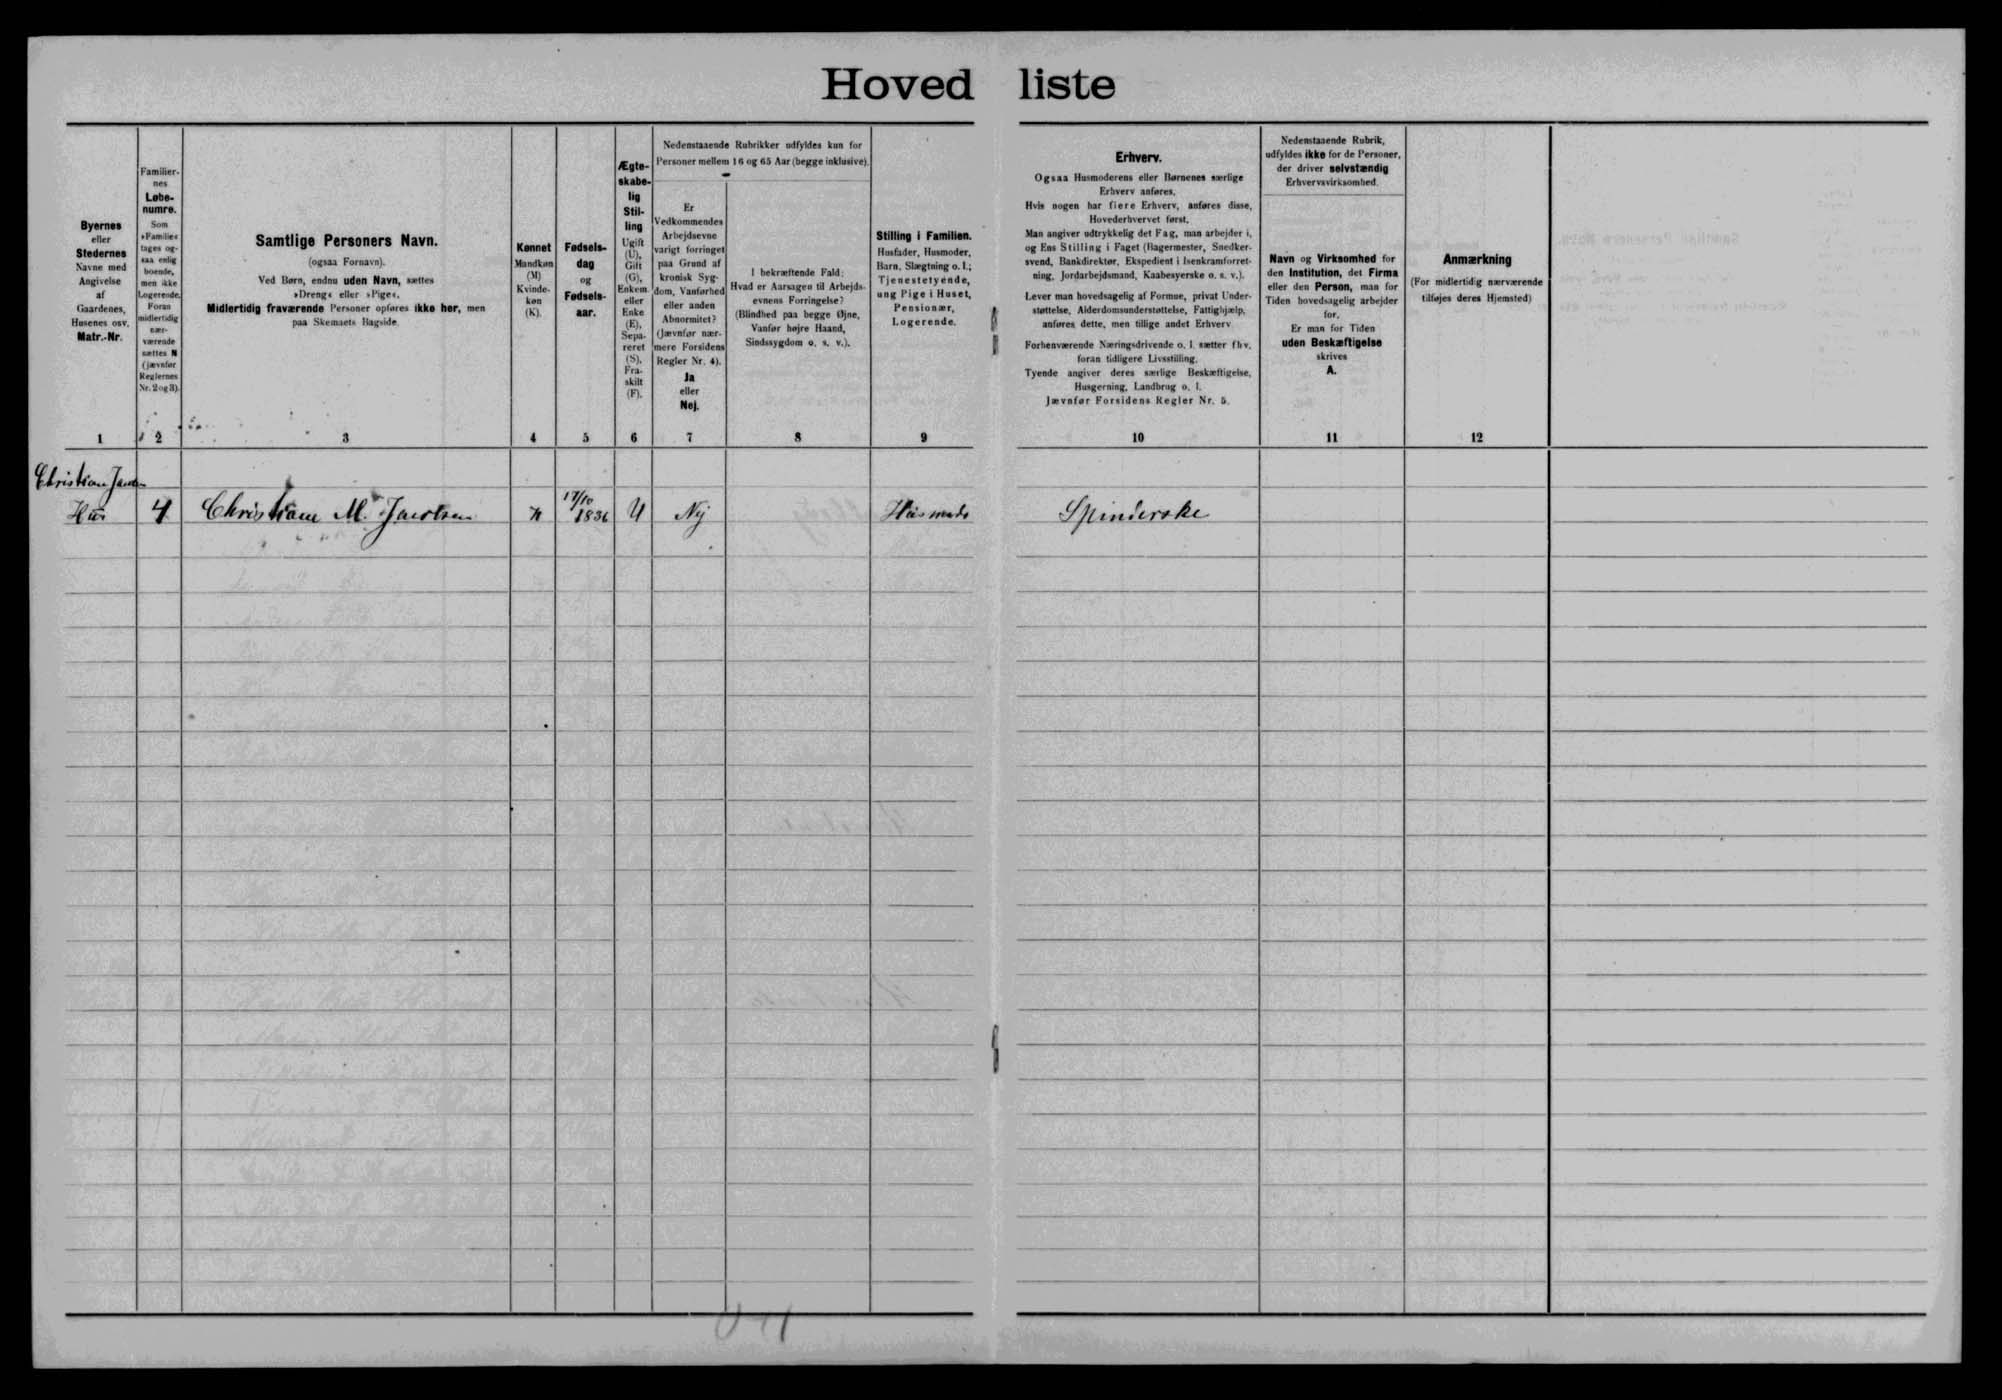 Hovedliste
Byernes
eller
Stedernes
Navne med
Angivelse
af
Gaardenes,
Husenes osv.
Matr.-Nr.
1
Familier-
nes
Løbe-
numre.
Som
»Familie«
tages og-
saa enlig
boende,
men ikke
Logerende.
Foran
midlertidig
nær-
værende
sættes N
(jævnfør
Reglernes
Nr. 2 og 3).
2
Samtlige Personers Navn.
(ogsaa Fornavn).
Ved Børn, endnu uden Navn, sættes
»Dreng« eller »Pige«.
Midlertidig fraværende Personer opføres ikke her, men
paa Skemaets Bagside.
3
Kønnet
Mandkøn
(M)
Kvinde-
køn
(K).
4
Fødsels-
dag
og
Fødsels-
aar.
5
Ægte-
skabe-
lig
Stil-
ling
Ugift
(U),
Gift
(G),
Enkem.
eller
Enke
(E),
Sepa-
reret
(S),
Fra-
skilt
(F).
6
Nedenstaaende Rubrikker udfyldes kun for
Personer mellem 16 og 65 Aar (begge inklusive).
Er
Vedkommendes
Arbejdsevne
varigt forringet
paa Grund af
kronisk Syg-
dom, Vanførhed
eller anden
Abnormitet?
(Jævnfør nær-
mere Forsidens
Regler Nr. 4).
Ja
eller
Nej.
7
I bekræftende Fald:
Hvad er Aarsagen til Arbejds-
evnens Forringelse?
(Blindhed paa begge Øjne,
Vanfør højre Haand,
Sindssygdom o. s. v.).
8
Stilling i Familien.
Husfader, Husmoder,
Barn, Slægtning o. l.;
Tjenestetyende,
ung Pige i Huset,
Pensionær,
Logerende.
9
Erhverv.
Ogsaa Husmoderens eller Børnenes særlige
Erhverv anføres.
Hvis nogen har flere Erhverv, anføres disse,
Hovederhvervet først.
Man angiver udtrykkelig det Fag, man arbejder i,
og Ens Stilling i Faget (Bagermester, Snedker-
svend, Bankdirektør, Ekspedient i Isenkramforret-
ning, Jordarbejdsmand, Kaabesyerske o. s. v.).
Lever man hovedsagelig af Formue, privat Under-
støttelse, Alderdomsunderstøttelse, Fattighjælp,
anføres dette, men tillige andet Erhverv.
Forhenværende Næringsdrivende o. l. sætter fhv.
foran tidligere Livsstilling.
Tyende angiver deres særlige Beskæftigelse,
Husgerning, Landbrug o. l.
Jævnfør Forsidens Regler Nr. 5.
10
Nedenstaaende Rubrik,
udfyldes ikke for de Personer,
der driver selvstændig
Erhvervsvirksomhed.
Navn og Virksomhed for
den Institution, det Firma
eller den Person, man for
Tiden hovedsagelig arbejder
for.
Er man for Tiden
uden Beskæftigelse
skrives
A.
11
Anmærkning
(For midlertidig nærværende
tilføjes deres Hjemsted)
12
Hus 4 Christiane M. K 17/10 1836 U Nej Spinderske